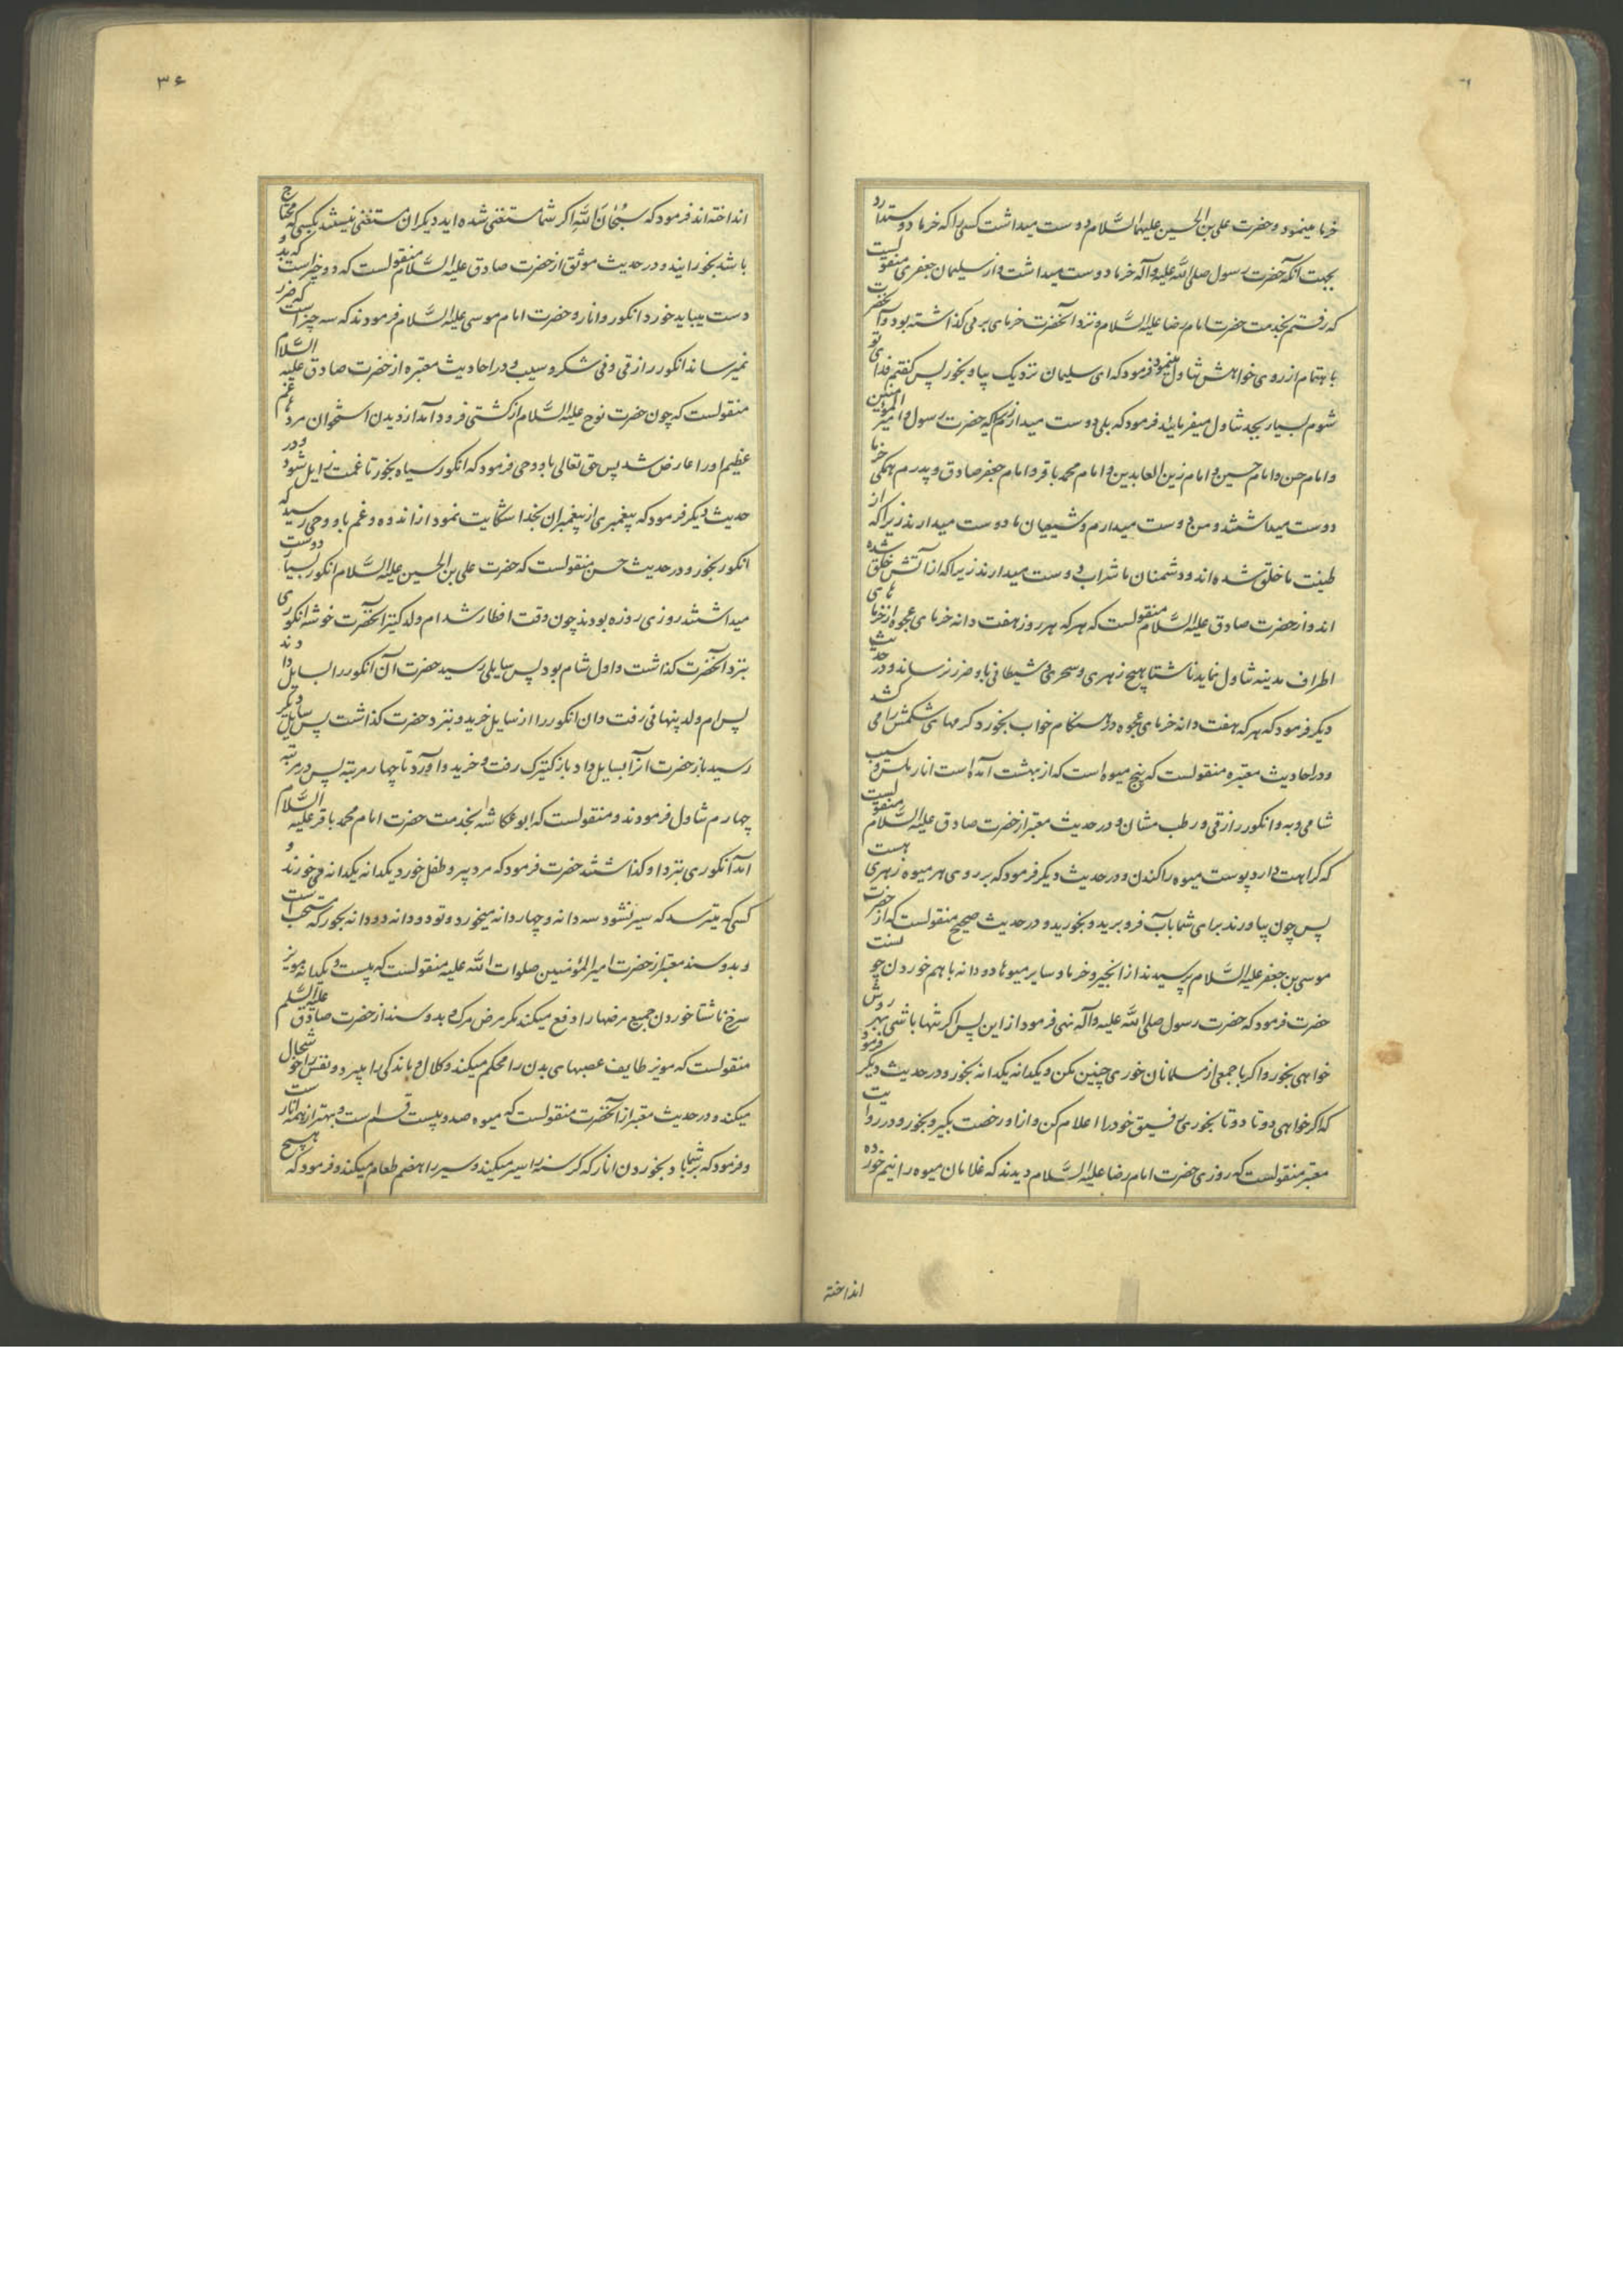 خرما مینمود و حضرت علی بن الحسین علیهما السَّلام دوست میداشت کسی را که خرما دوستدارد
بجهت آنکه حضرت رسول صلی اللّه علیه و آله خرما دوست میداشت و از سلیمان جعفری منقولست
که رفتم بخدمت حضرت امام رضا علیه السَّلام و نزد آنحضرت خرمای برنی کذاشته بود و آنحضرت
باهتمام از روی خواهش تناول مینمود فرمود که ای سلیمان نزدیک بیا و بخور پس کفتم فدای تو
شوم بسیار بجد تناول میفرمایید فرمود که بلی دوست میدارم زیرا که حضرت رسول و امیر المؤمنین
و امام حسن و امام حسین و امام زین العابدین و امام محمد باقر و امام جعفر صادق و پدرم همکی خرما
دوست میداشتند و من دوست میدارم و شیعیان ما دوست میدارند زیرا که از
طینت ما خلق شده اند و دشمنان ما شراب دوست میدارند زیرا که از آتش خلق شده
اند و از حضرت صادق علیه السَّلام منقولست که هر که هر روز هفت دانه خرمای عجوه از خرماهای
اطراف مدینه تناول نماید ناشتا هیچ زهری و سحری و شیطانی باو ضرر نرساند و در حدیث
دیکر فرمود که هر که هفت دانه خرمای عجوه در هنکام خواب بخورد کرمهای شکمش را می کشد
و در احادیث معتبره منقولست که پنج میوه است که از بهشت آمده است انار ملس و سیب
شامی و به و انکور رازقی و رطب مشان و در حدیث معتبر از حضرت صادق علیه السَّلام منقولست
که کراهت دارد پوست میوه را کندن و در حدیث دیکر فرمود که بر روی هر میوه زهری هست
پس چون بیاورند برای شما بآب فرو برید و بخورید و در حدیث صحیح منقولست که از حضرت
موسی بن جعفر علیه السَّلام پرسیدند از انجیر و خرما و سایر میوها دو دانه با هم خوردن چونست
حضرت فرمود که حضرت رسول صلی اللّه علیه و آله نهی فرمود از این پس اکر تنها باشی بهر روش
خواهی بخور و اکر با جمعی از مسلمانان خوری چنین مکن و یکدانه یکدانه بخور و در حدیث دیکر فرمود
که اکر خواهی دو تا دو تا بخوری رفیق خود را اعلام کن و از او رخصت بکیر و بخور و در روایت
معتبر منقولست که روزی حضرت امام رضا علیه السَّلام دیدند که غلامان میوه را نیم خورده
انداخته
۳۶
انداخته اند فرمود که سُبْحَانَ اللّهِ اکر شما مستغنی شده اید دیکران مستغنی نیستند بکسی که محتاج
باشد بخورانید و در حدیث موثق از حضرت صادق علیه السَّلام منقولست که دو چیز است که بدو
دست میباید خورد انکور و انار و حضرت امام موسی علیه السَّلام فرمودند که سه چیز است که ضرر
نمیرساند انکور رازقی و نی شکر و سیب و در احادیث معتبره از حضرت صادق علیه السَّلام
منقولست که چون حضرت نوح علیه السَّلام از کشتی فرود آمد از دیدن استخوان مردم غم
عظیم او را عارض شد پس حق تعالی باو وحی فرمود که انکور سیاه بخور تا غمت زایل شود و در
حدیث دیکر فرمود که پیغمبری از پیغمبران بخدا شکایت نمود از اندوه و غم باو وحی رسید که
انکور بخور و در حدیث حسن منقولست که حضرت علی بن الحسین علیه السَّلام انکور بسیار دوست
میداشتند روزی روزه بودند چون وقت افطار شد ام ولد کنیز آنحضرت خوشه انکوری
بنزد آنحضرت کذاشت و اول شام بود پس سایلی رسید حضرت آن انکور را بسایل دادند
پس ام ولد پنهانی رفت و آن انکور را از سایل خرید و بنزد حضرت کذاشت پس سایل دیکر
رسید باز حضرت انرا بسایل داد باز کنیزک رفت و خرید و آورد تا چهار مرتبه پس در مرتبه
چهارم تناول فرمودند و منقولست که ابو عکاشه بخدمت حضرت امام محمد باقر علیه السَّلام
آمد انکوری بنزد او کذاشتند حضرت فرمود که مرد پیر و طفل خورد یکدانه یکدانه می خورند و
کسی که میترسد که سیر نشود سه دانه و چهار دانه میخورد و تو دو دانه دو دانه بخور که مستحب است
و بدو سند معتبر از حضرت امیر المؤمنین صلوات اللّه علیه منقولست که بیست و یکدانه مویز
سرخ ناشتا خوردن جمیع مرضها را دفع میکند مکر مرض مرک و بدو سند از حضرت صادق علیه السّلم
منقولست که مویز طایف عصبهای بدن را محکم میکند و کلال و ماندکی را میبرد و نفس را خوشحال
میکند و در حدیث معتبر از آنحضرت منقولست که میوه صد و بیست قسم است و بهتر از همه انار است
و فرمود که بر شما باد بخوردن انار که کرسنه را سیر میکند و سیر را هضم طعام میکند و فرمود که هیچ